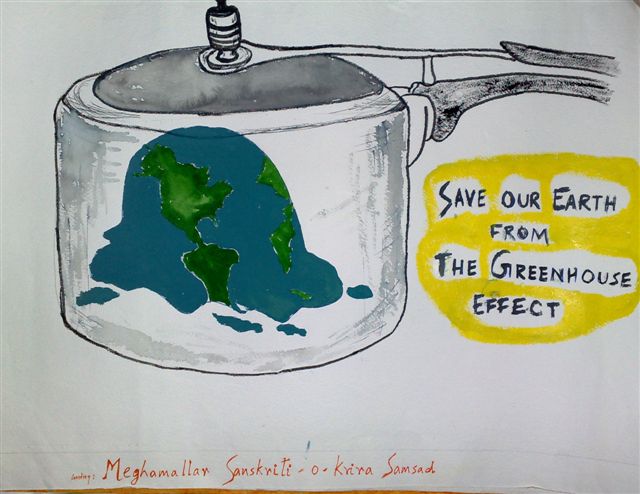 SAVE OUR EARTH
FROM
THE GREENHOUSE
EFFECT
Meghamallar Sanskriti - o - Krira Samsad